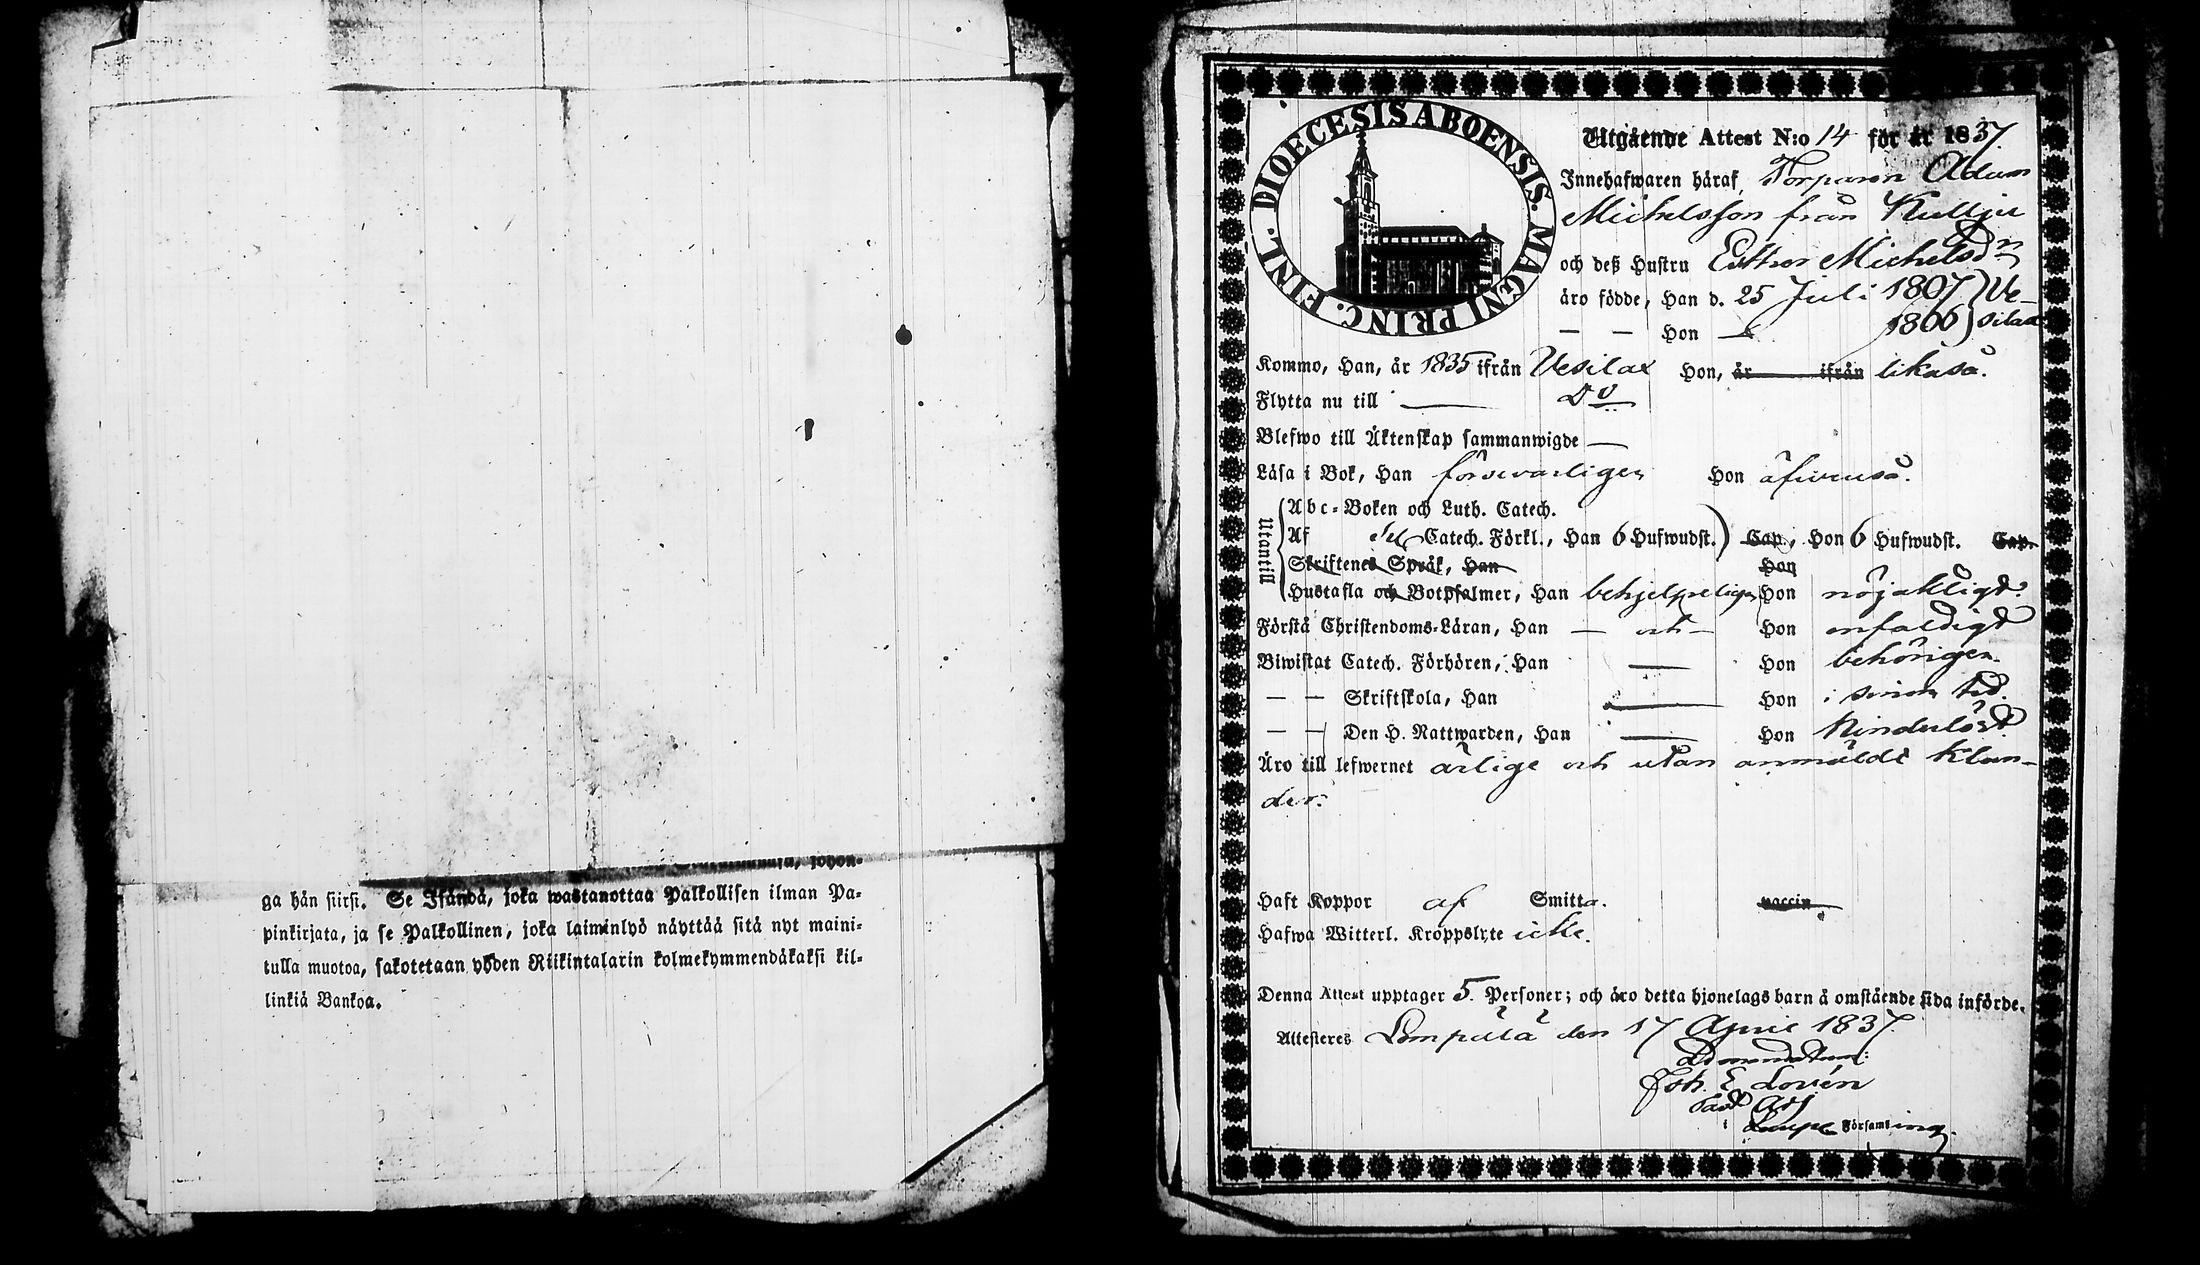 johon-
ga hän siirsi. Se Isändä, joka wastanottaa Palkollisen ilman Pa-
pinkirjata, ja se Palkollinen, joka laiminlyö näyttää sitä nyt maini-
tulla muotoa, sakotetaan yhden Riikintalarin kolmekymmendäkaksi kil-
linkiä Bankoa.
DIOECESIS ABOENSIS. MAGNI PRINC. FINL.
Utgående Attest N:o 14 för år 1837.
Innehafwaren häraf, Torparen Adam
Michelsson från Kulju
och deß Hustru Esther Michelsdr
äro födde, Han d. 25 Juli 1807 } Ve-
— — Hon — 1806 } silax
Kommo, Han, år 1835 ifrån Vesilax Hon, år ifrån likaså.
Flytta nu till — Do
Blefwo till Äktenskap sammanwigde —
Läsa i Bok, Han försvarligen Hon äfvenså.
Utantill
Abc-Boken och Luth. Catech.
Af Catech. Förkl., Han 6 Hufwudst. ) Cap., Hon 6 Hufwudst. Cap.
Skriftenes Språk, Han Hon
Hustafla och Botpsalmer, Han behjelpeligen Hon nöjaktligt.
Förstå Christendoms-Läran, Han — och — Hon enfaldigt
Biwistat Catech. Förhören, Han — Hon behörigen
— — Skriftskola, Han — Hon i sinom tid.
— — Den H. Nattwarden, Han — Hon hinderlöst
Äro till lefwernet ärlige och utan anmäldt klan-
der.
Haft Koppor af Smitta. vaccin
Hafwa Witterl. Kroppslyte icke.
Denna Attest upptager 5. Personer; och äro detta hjonelags barn å omstående sida införde.
Attesteras Lempälä den 17 April 1837.
Joh. E. Lovén
Past Adj
i Lempe Församling.